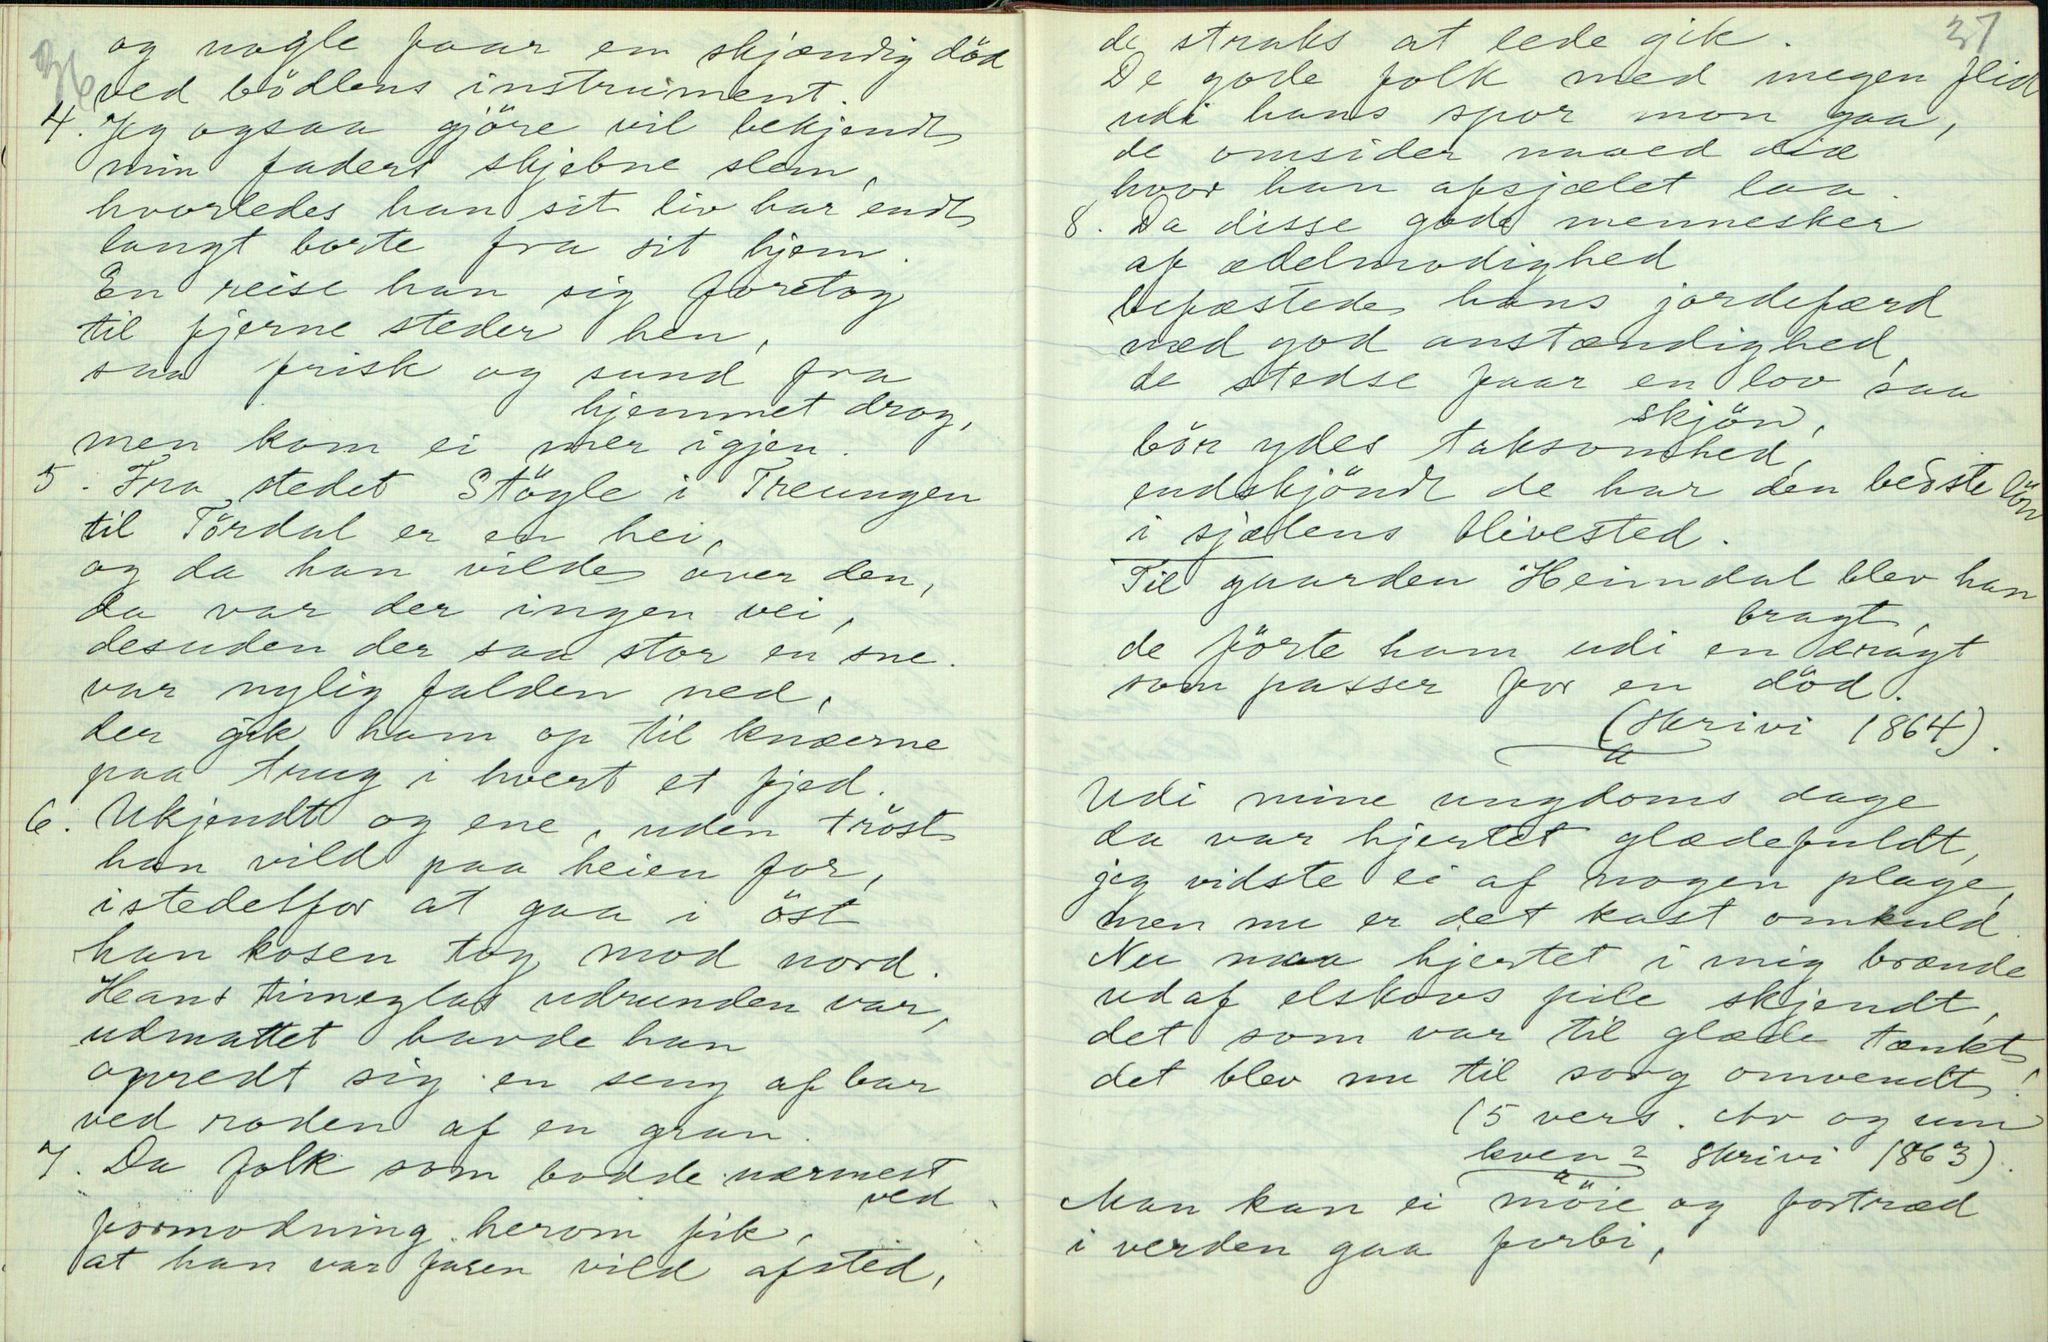 36
og nogle faar en skjændig död
ved bödlens instrument.
4. Jeg ogsaa gjöre vil bekjendt
min faders skjebne slem,
hvorledes han sit liv har endt
langt borte fra sit hjem.
En reise han sig foretog
til fjerne steder hen,
saa frisk og sund fra
hjemmet drog,
men kom ei mer igjen.
5. Fra stedet Stögle i Treungen
til Tördal er en hei,
og da han vilde over den,
da var der ingen vei,
desuden der saa stor en sne.
var nylig falden ned,
der gik ham op til knæerne
paa trug i hvert et fjed.
6. Ukjendt og ene, uden tröst
han vild paa heien for,
istedetfor at gaa i öst
han kosen tog mod nord.
Hans timeglas udrunden var,
udmattet havde han
opredt sig en seng af bar
ved roden af en gran.
7. Da folk som bodde nærmest
ved
formodning herom fik,
at han var faren vild afsted,
37
de straks at lede gik.
De gode folk med megen flid
udi hans spor mon gaa,
de omsider naaed did
hvor han afsjælet laa.
8. Da disse gode mennesker
af ædelmodighed
befæstede hans jordefærd
med god anstændighed,
de stedse faar en lov saa
skjön,
bör ydes taksomhed,
endskjöndt de har den bedste lön
i sjælens blivested.
Til gaarden Heimdal blev han
bragt,
de förte ham udi en dragt
som passer for en död.
(Skrivi 1864).
Udi mine ungdoms dage
da var hjertet glædefuldt,
jeg vidste ei af nogen plage,
men nu er det kast omkuld.
Nu maa hjertet i mig brænde
udaf elskovs pile skjendt,
det som var til glæde tænkt
det blev nu til sorg omvendt!
(5 vers. Av og um
kven? Skrivi 1863).
Man kan ei möie og fortræd
i verden gaa forbi,